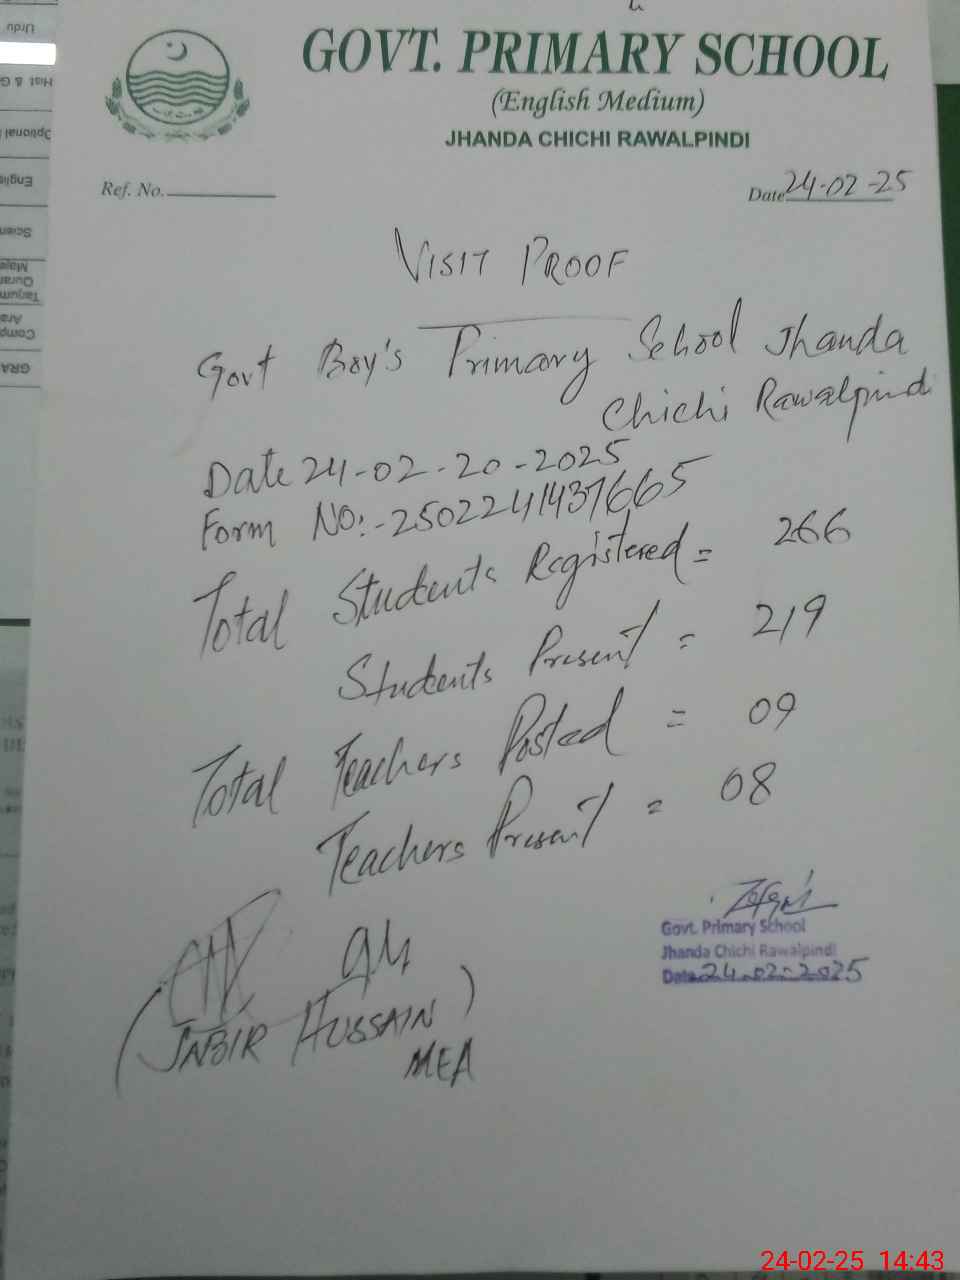 GOVT. PRIMARY SCHOOL
(English Medium)
JHANDA CHICHI RAWALPINDI
Ref. No.
Date 24-02-25
VISIT PROOF
Govt Boy's Primary School Jhanda
Chichi Rawalpindi
Date 24-02-20-2025
Form NO:-2502241437665
Total Students Registered = 266
Students Present = 219
Total Teachers Posted = 09
Teachers Present = 08
Govt. Primary School
Jhanda Chichi Rawalpindi
Date 24-02-2025
94
(JABIR HUSSAIN)
MEA
Urdu
Hist & G
Optional
English
Scien
Majee
Quran
Tarjum
Ara
Comp
GRA
24-02-25 14:43